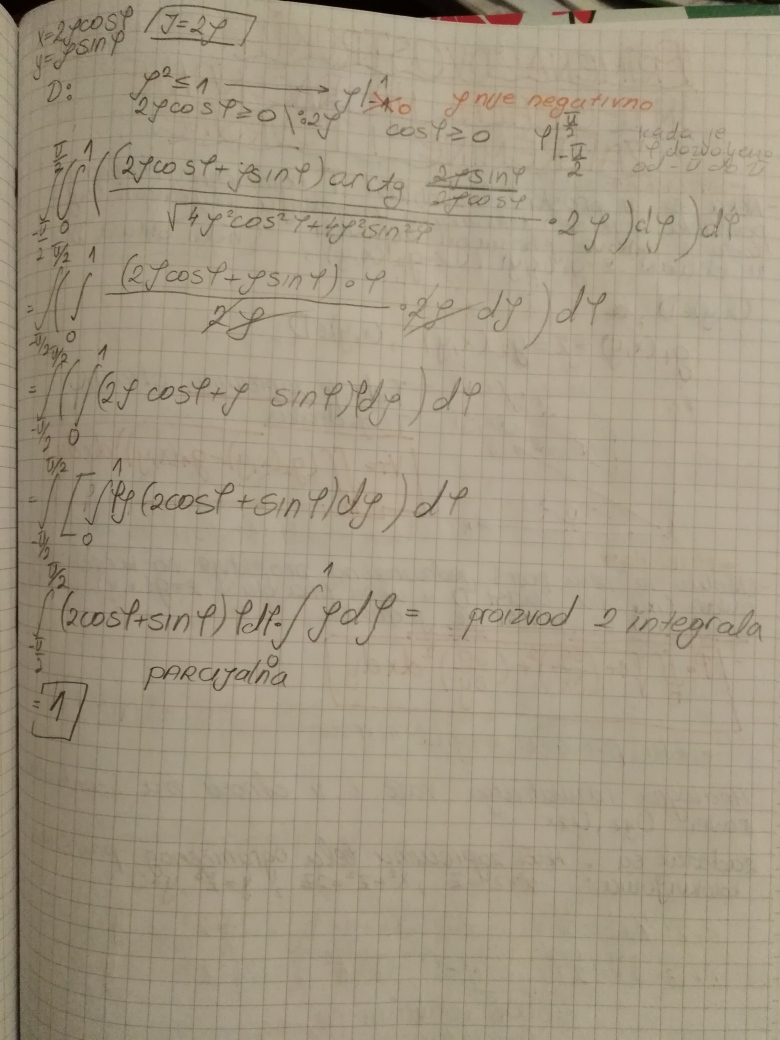 x=2ρcosφ J=2ρ
y=ρsinφ
D: ρ²≤1 → ρ|₀¹ ρ nije negativno
2ρcosφ≥0 \:2ρ cosφ≥0 φ|_{-π/2}^{π/2} kada je φ dozvoljeno od -π do π
∫_{-π/2}^{π/2} (∫₀¹ ( (2ρcosφ+ρsinφ) arctg (2ρsinφ / 2ρcosφ) / √(4ρ²cos²φ+4ρ²sin²φ) · 2ρ ) dρ ) dφ
= ∫_{-π/2}^{π/2} ( ∫₀¹ (2ρcosφ+ρsinφ)·φ / 2ρ · 2ρ dρ ) dφ
= ∫_{-π/2}^{π/2} ( ∫₀¹ (2ρ cosφ+ρ sinφ)φdρ ) dφ
= ∫_{-π/2}^{π/2} [ ∫₀¹ φρ(2cosφ+sinφ)dρ ) dφ
∫_{-π/2}^{π/2} (2cosφ+sinφ) φdφ · ∫₀¹ ρdρ = proizvod 2 integrala
PARCIJALNA
= 1